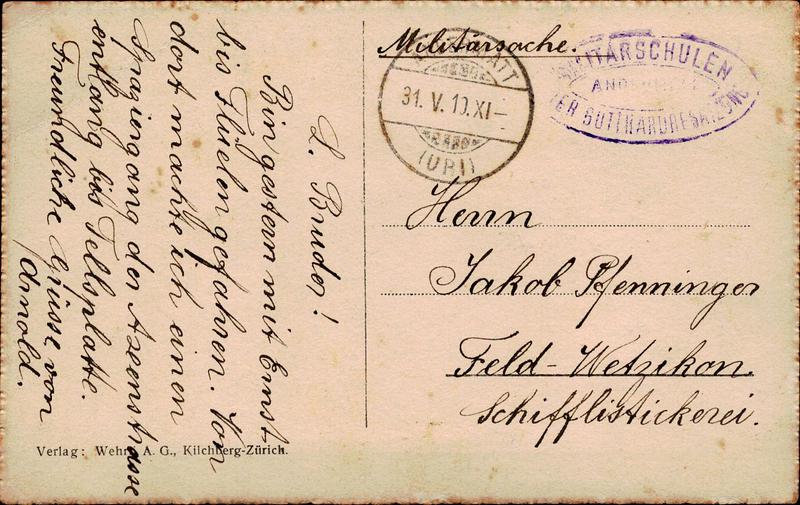 Militärsache.
MILITÄRSCHULEN
DER GOTTHARDBEFESTIGUNG
31. V. 10. XI–
(URI)
L. Bruder!
Bin gestern mit Ernst
bis Flüelen gefahren. Von
dort machte ich einen
Spaziergang der Axenstrasse
entlang bis Tellsplatte.
Freundliche Grüsse von
Arnold.
Herrn
Jakob Pfenninger
Feld-Wetzikon.
Schifflistickerei.
Verlag: Wehrli A. G., Kilchberg-Zürich.